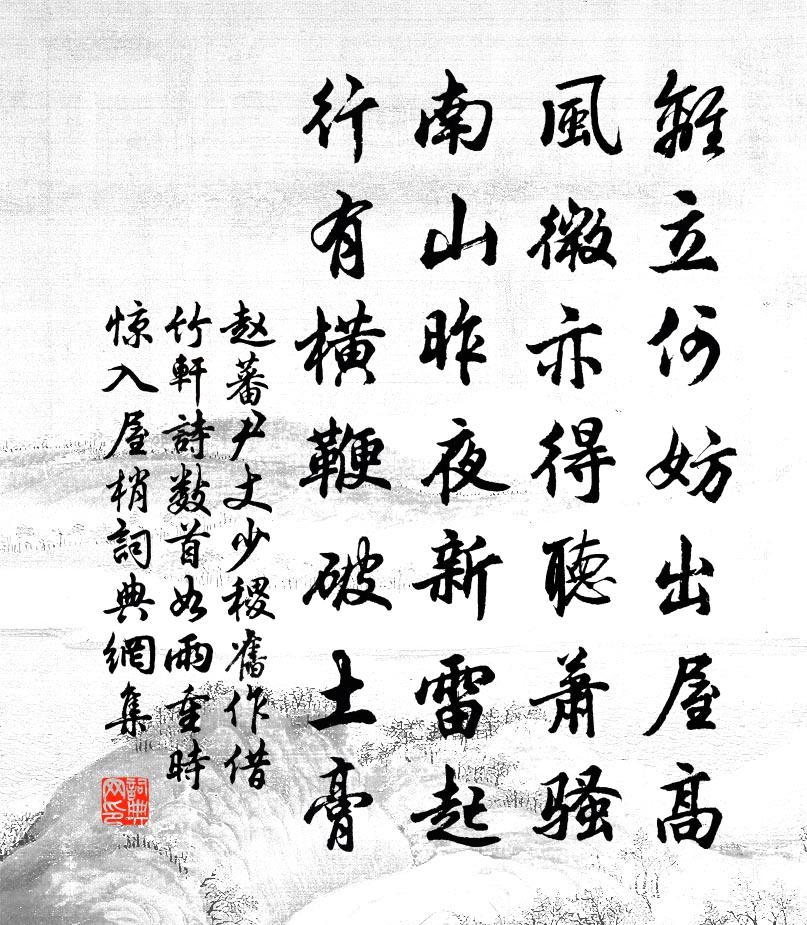 離立何妨出屋高
風微亦得聽蕭騷
南山昨夜新雷起
行有橫鞭破土膏
赵蕃尹丈少稷舊作借
竹軒詩数首如雨重時
惊入屋梢詞典網集
詞典網印